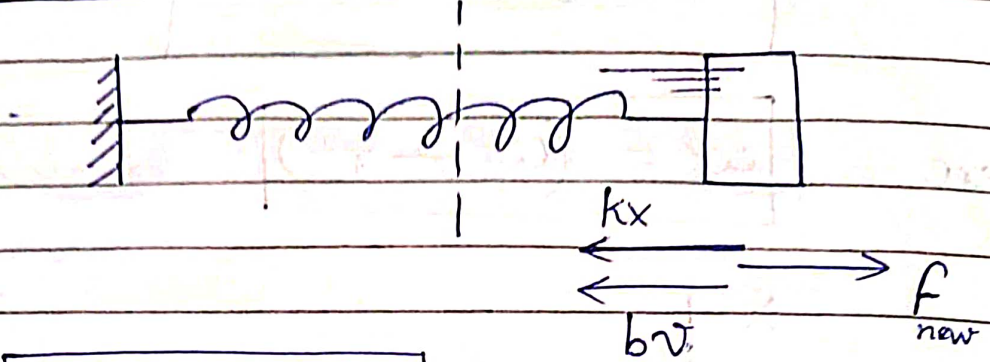 kx
f
new
bv